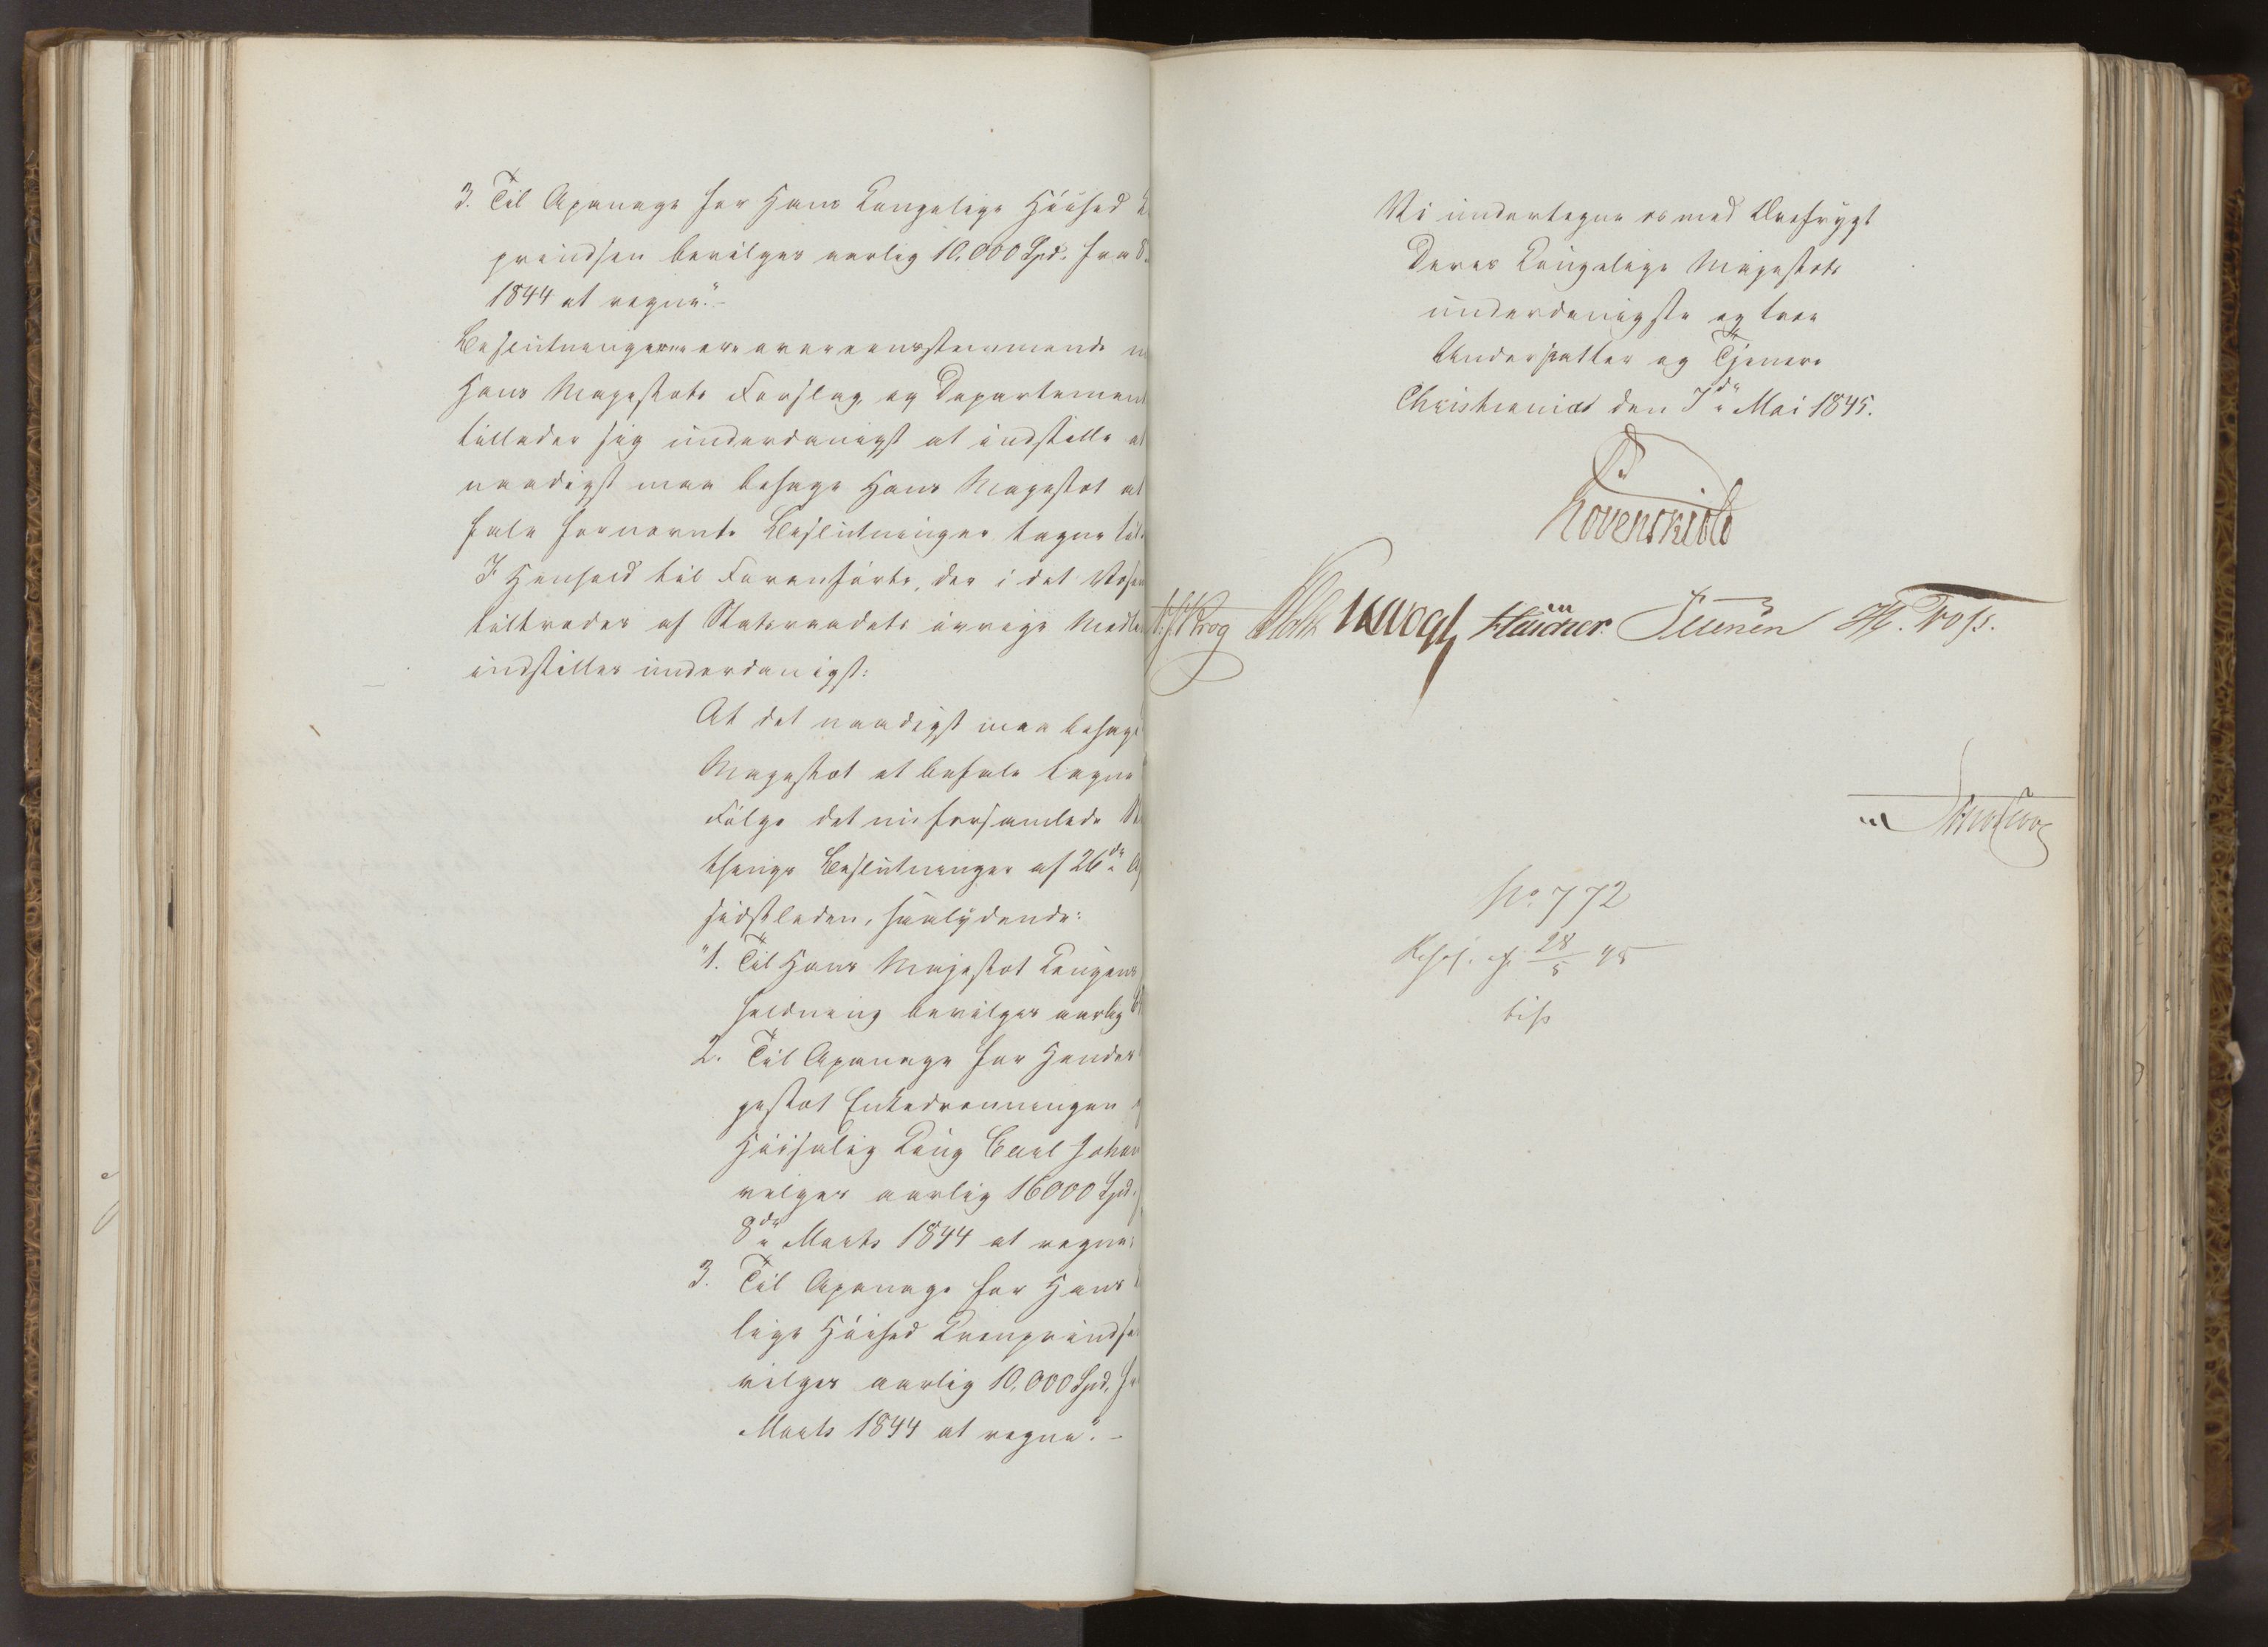 3. Til Apanage for Hans Kongelige Høihed K
prindsen bevilges aarlig 10,000 Spd. fra 8.
1844 at regne."-
Beslutningerne ere overeensstemmende m
Hans Majestæts Forslag, og Departement
tillader sig underdanigst at indstille at
naadigst maa behage Hans Majestæt at
fale fornævnte Beslutninger tagne til
I Henhold til Foranførte, der i det Væsen
tiltrædes af Statsraadets øvrige Medle
indstilles underdanigst:
At det naadigst maa behage
Majestæt at befale tagne
Følge det nu forsamlede St
things Beslutninger af 26de A
sidstleden, saalydende:
"1. Til Hans Majestæt Kongens
holdning bevilges aarlig
2. Til Apanage for Hendes
jestæt Enkedronningen
Høisalig Kong Carl Johan
vilges aarlig 16000 Spd.
8de Marts 1844 at regne;
3. Til Apanage for Hans
lige Høihed Kronprindsen
vilges aarlig 10,000 Spd. fra
Marts 1844 at regne".-
Vi undertegne os med Ærefrygt
Deres Kongelige Majestæts
underdanigste og troe
Undersatter og Tjenere
Christiania den 7de Mai 1845.
Lövenskiold
Krog Holst Vogt Petersen
No. 772
Resol. af 28/5 45